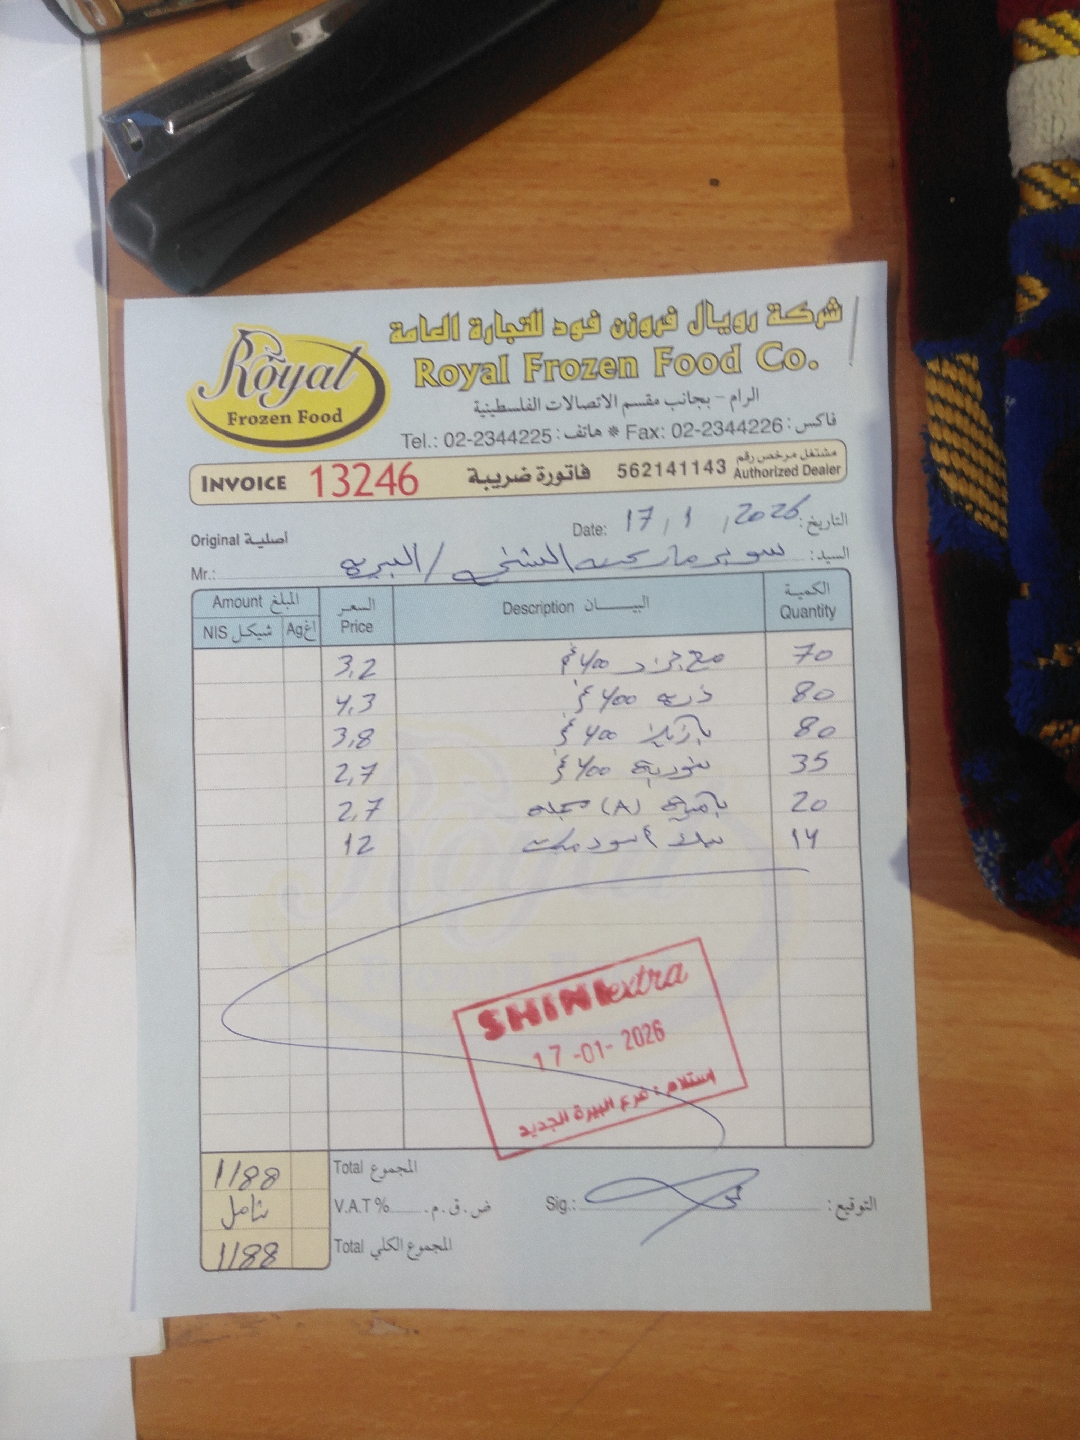 شركة رويال فروزن فود للتجارة العامة
Royal Frozen Food Co.
Royal
Frozen Food
الرام - بجانب مقسم الاتصالات الفلسطينية
Tel.: 02-2344225 : هاتف * Fax: 02-2344226 : فاكس
INVOICE 13246 فاتورة ضريبة 562141143 مشتغل مرخص رقم Authorized Dealer
Original أصلية
Date: 17 / 1 / 2026 التاريخ:
Mr.: سوبرماركت الشني / البيرة السيد:
Amount المبلغ السعر Price Description البيـــان الكمية Quantity
NIS شيكل Ag اغ
3,2 400 غ 70
4,3 ذرة 400 غ 80
3,8 بازيلا 400 غ 80
2,7 400 غ 35
2,7 بامية (A) 20
12 14
SHINI extra
17-01-2026
استلام: فرع البيرة الجديد
1188 Total المجموع
شامل V.A.T % ض.ق.م.
Sig.: التوقيع:
1188 Total المجموع الكلي